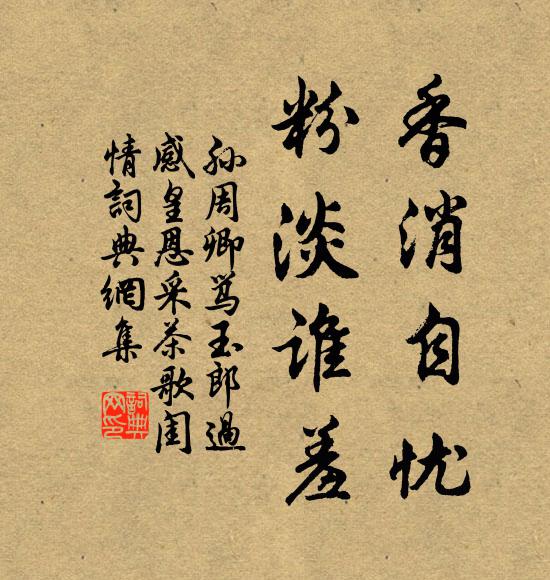 香消自忧
粉淡谁羞
孙周卿骂玉郎過
感皇恩采茶歌闺
情詞典網集
詞典
网印